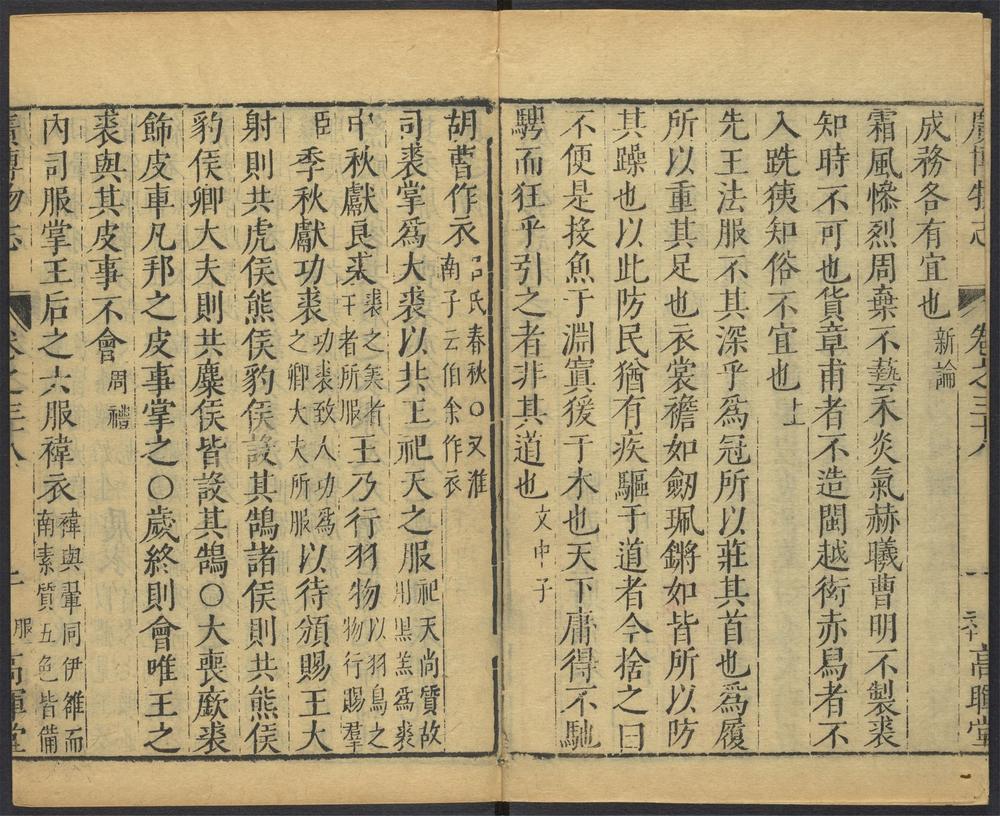 廣博物志
卷之三十八
一
高暉堂
成務各有宜也 新論
霜風慘烈周棄不藝禾炎氣赫曦曹明不製裘
知時不可也貨章甫者不造閩越衒赤舄者不
入跣夷知俗不宜也 上
先王法服不其深乎爲冠所以莊其首也爲履
所以重其足也衣裳襜如劒珮鏘如皆所以防
其躁也以此防民猶有疾驅于道者今捨之曰
不便是投魚于淵寘猨于木也天下庸得不馳
騁而狂乎引之者非其道也 文中子
胡曹作衣 呂氏春秋〇又淮南子云伯余作衣
司裘掌爲大裘以共王祀天之服 祀天尚質故用黒羔爲裘
中秋獻良裘 裘之美者王者所服 王乃行羽物 以羽鳥之物行賜羣
臣 季秋獻功裘 功裘致人功爲之卿大夫所服 以待頒賜王大
射則共虎侯熊侯豹侯設其鵠諸侯則共熊侯
豹侯卿大夫則共麋侯皆設其鵠〇大喪廞裘
飾皮車凡邦之皮事掌之〇歲終則會唯王之
裘與其皮事不會 周禮
內司服掌王后之六服褘衣 褘與翬同伊雒而南素質五色皆備
廣博物志
卷之三十八
服
高暉堂